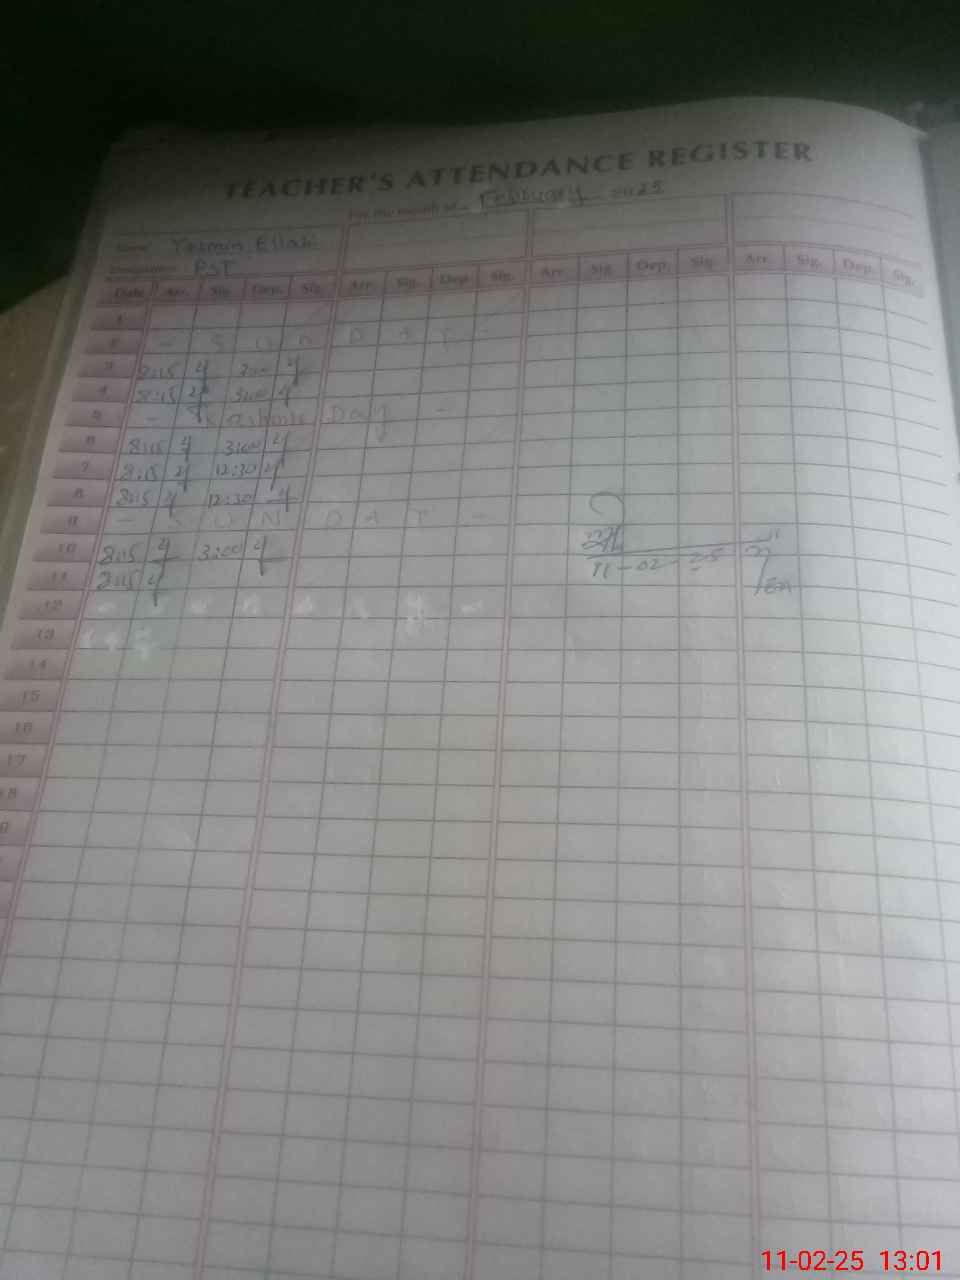 TEACHER'S ATTENDANCE REGISTER
For the month of February 2025
Name Yasmin
Designation PST
Date Arr. Sig. Dep. Sig. Arr. Sig. Dep. Sig. Arr. Sig. Dep. Sig. Arr. Sig. Dep. Sig.
1
2 - S U N D A Y -
3 8:15 3:00
4 8:15 3:00
5 - Kashmir Day -
6 8:15 3:00
7 8:15 12:30
8 8:15 12:30
9 - S U N D A Y -
10 8:15 3:00
11 8:15
11-02-25
12
13
14
15
16
17
18
11-02-25 13:01